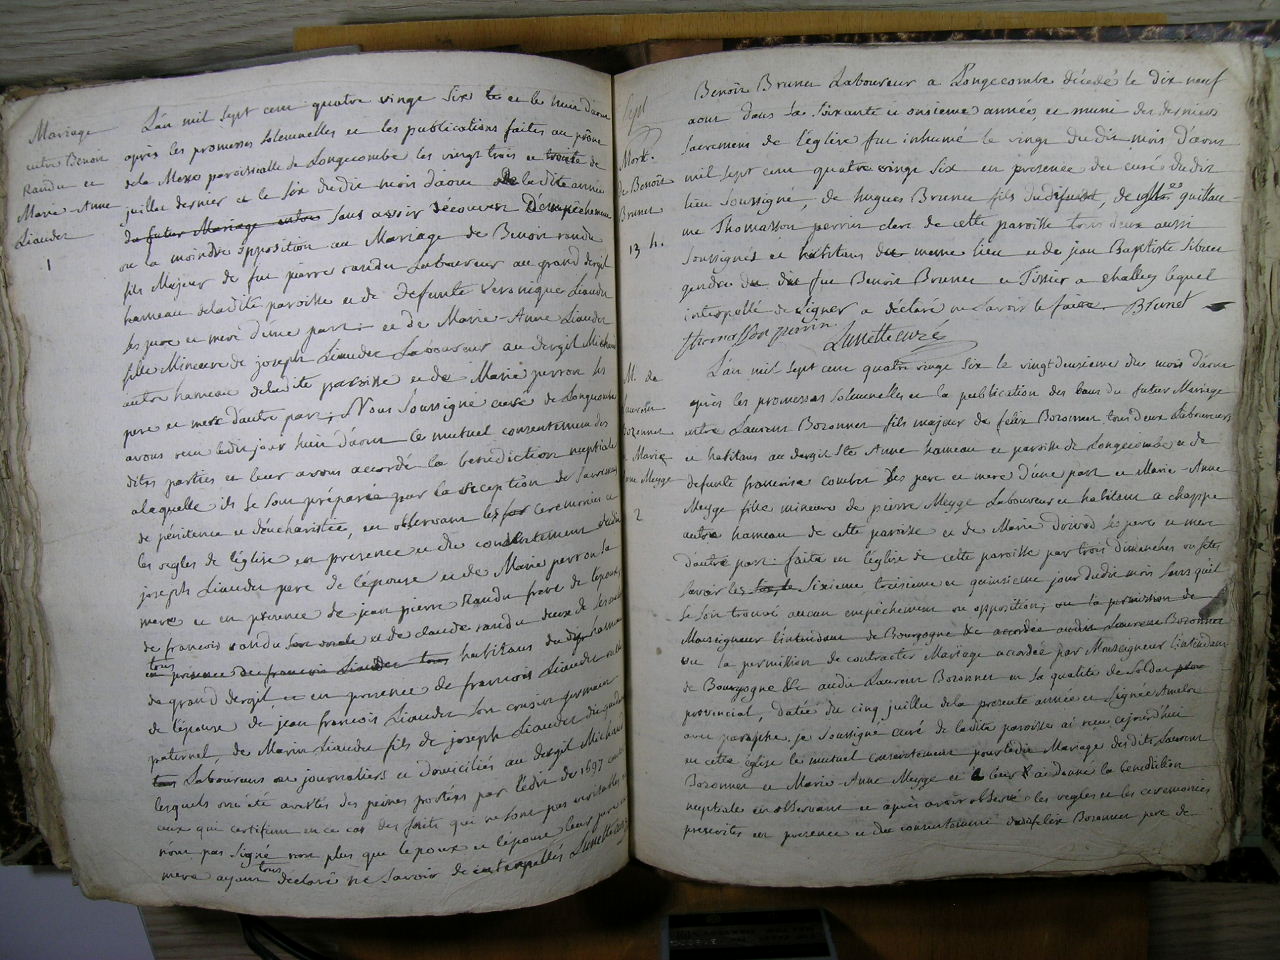 Mariage
entre Benoit
Randu et
Marie-Anne
Liaudet
1
L'an mil sept cent quatre vingt six et le huit d'aout
après les promesses solemnelles et les publications faites au prône
de la Messe paroissialle de Longecombe les vingt trois et trente de
juillet dernier et le six du dit mois d'aout de la dite année
du futur Mariage entre sans avoir découvert d'empêchement
ou la moindre opposition au Mariage de Benoit randu
fils Majeur de feu pierre randu Laboureur au grand dergil
hameau de ladite paroisse et de deffunte veronique Liaudet
ses pere et mere d'une part : et de Marie-Anne Liaudet
fille Mineure de joseph Liaudet Laboureur au dergil Michaud
autre hameau de ladite paroisse et de Marie perron ses
pere et mere d'autre part ; Nous Soussigné curé de Longecombe
avons reçu ledit jour huit d'aout le mutuel consentement des
dites parties et leur avons accordé la bénédiction nuptiale
a laquelle ils se sont préparés par la réception de sacremens
de pénitence et d'eucharistie, en observant les ceremonies et
les regles de l'église en presence et du consentement dudit
joseph Liaudet pere de l'épouse et de Marie perron sa
mere et en présence de jean pierre Randu frere de l'époux,
de francois randu son oncle et de claude randu deux de
tous
en presence de francois Liaudet tous habitans du dit hameau
de grand dergil, et en presence de francois Liaudet
de l'épouse de jean francois Liaudet son cousin germain
paternel, de Marin Liaudet fils de joseph Liaudet
tous Laboureurs ou journaliers et domiciliés au dergil Michaud
lesquels ont été avertis des peines portées par l'édit de 1697 contre
ceux qui certifient en ce cas des faits qui ne sont pas veritables
n'ont pas signé non plus que l'epoux et l'épouse leur pere et
tous
mere ayant déclaré ne savoir de ce interpellés
Sept
Mort.
de Benoit
Brunet
13 h.
Benoit Brunet Laboureur a Longecombe décédé le dix neuf
aout dans sa soixante et onsieme année et muni des derniers
sacremens de l'église fut inhumé le vingt du dit mois d'aout
mil sept cent quatre vingt six en presence du curé du dit
lieu soussigné, de hugues Brunet fils du difunt, de guillau-
me Thomasson perrin clerc de cette paroisse tous deux aussi
soussignés et habitans du meme lieu et de jean Baptiste
gendre du dit feu Benoit Brunet et Tissier a challey lequel
interpellé de signer a déclaré ne savoir le faire. Brunet
thomasson perrin. Lunette curé
M. de
Laurent
Bozonnet
Marie
anne Meyge
2
L'an mil sept cent quatre vingt six le vingt deuxieme du mois d'aout
après les promesses solemnelles et la publication des bans du futur Mariage
entre Laurent Bozonnet fils majeur de felix Bozonnet tous deux Laboureurs
et habitans au dergil Ste Anne hameau et paroisse de Longecombe et de
defunte francoise combet ses pere et mere d'une part et Marie-Anne
Meyge fille mineure de pierre Meyge Laboureur et habitant a chappe
autre hameau de cette paroisse et de Marie ses pere et mere
d'autre part: faite en l'église de cette paroisse par trois dimanches ou fêtes
savoir les sixieme treisieme et quinsieme jour dudit mois sans qu'il
se soit trouvé aucun empêchement ou opposition; ou la permission de
Monseigneur l'intendant de Bourgogne &c accordée audit Laurent Bozonnet
vu la permission de contracter Mariage accordée par Monseigneur l'intendant
de Bourgogne &c audit Laurent Bozonnet en sa qualité de soldat
provincial, datée du cinq juillet de la presente année et signée Amelot
avec paraphe, je soussigné curé de ladite paroisse ai reçu cejourd'hui
en cette église le mutuel consentement pour ledit Mariage des dits Laurent
Bozonnet et Marie Anne Meyge et leur ai donné la benediction
nuptiale en observant et après avoir observé les regles et les ceremonies
prescrites en presence et du consentement dudit felix Bozonnet pere de